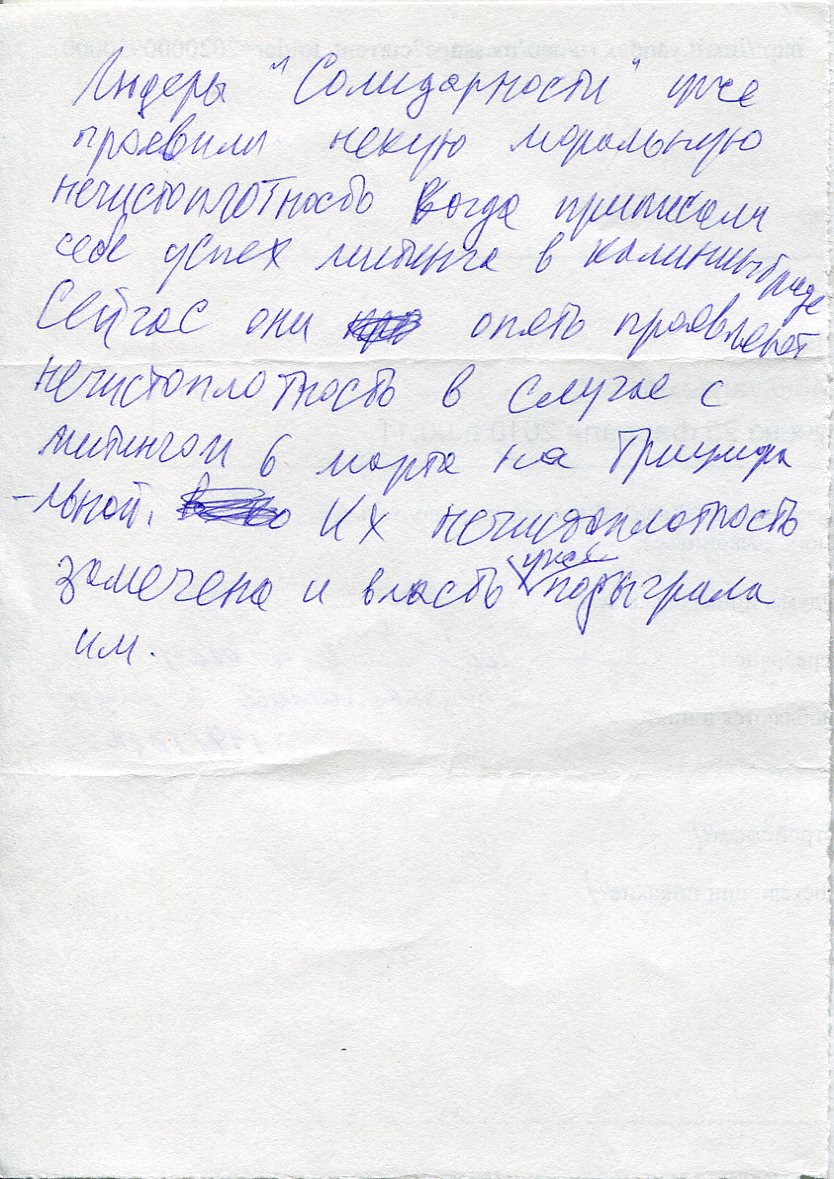 Лидеры "Солидарности" уже
проявили некую моральную
нечистоплотность когда приписали
себе успех митинга в калининграде
Сейчас они опять проявляют
нечистоплотность в случае с
митингом 6 марта на Триумфа
-льной. Их нечистоплотность
замечена и власть уже подыграла
им.